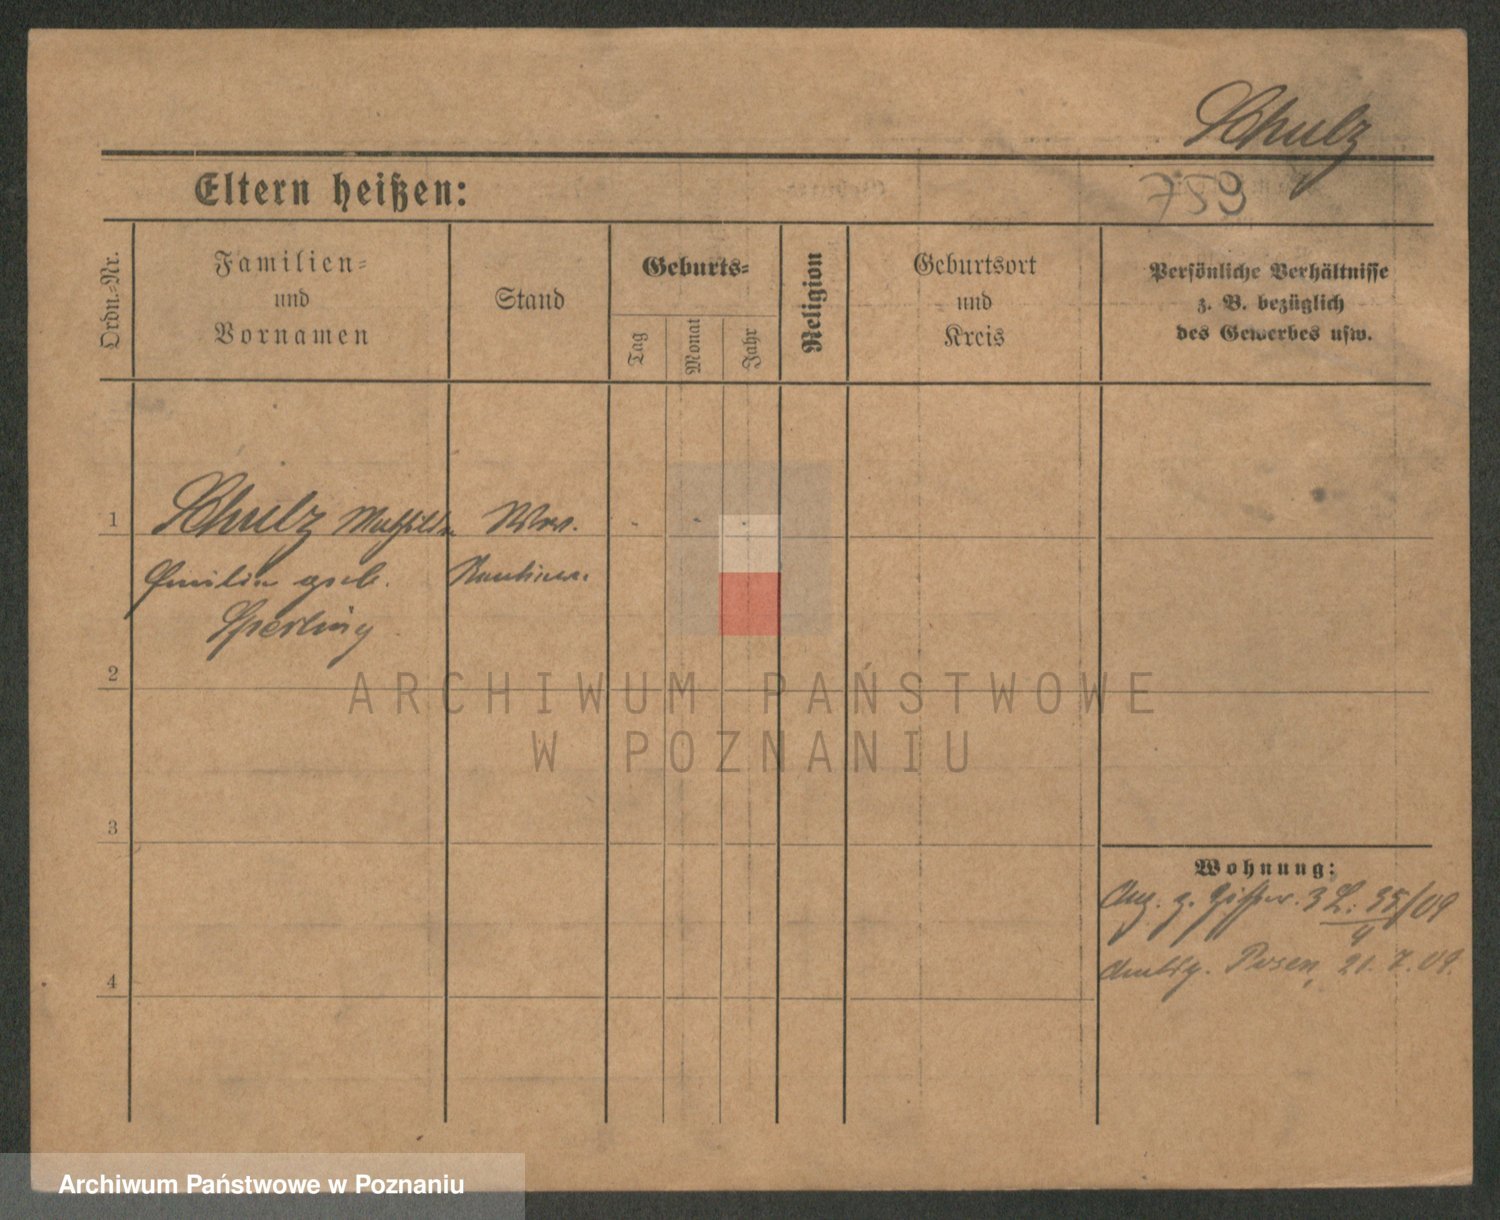 Schulz
759
Eltern heißen:
Ordn.-Nr.
Familien-
und
Vornamen
Stand
Geburts-
Tag
Monat
Jahr
Religion
Geburtsort
und
Kreis
Persönliche Verhältnisse
z. B. bezüglich
des Gewerbes usw.
1
Schulz Mathilde
Emilie geb.
Sperling
2
ARCHIWUM PAŃSTWOWE
W POZNANIU
3
Wohnung:
35/09
4
Posen, 21. 7. 09.
4
Archiwum Państwowe w Poznaniu